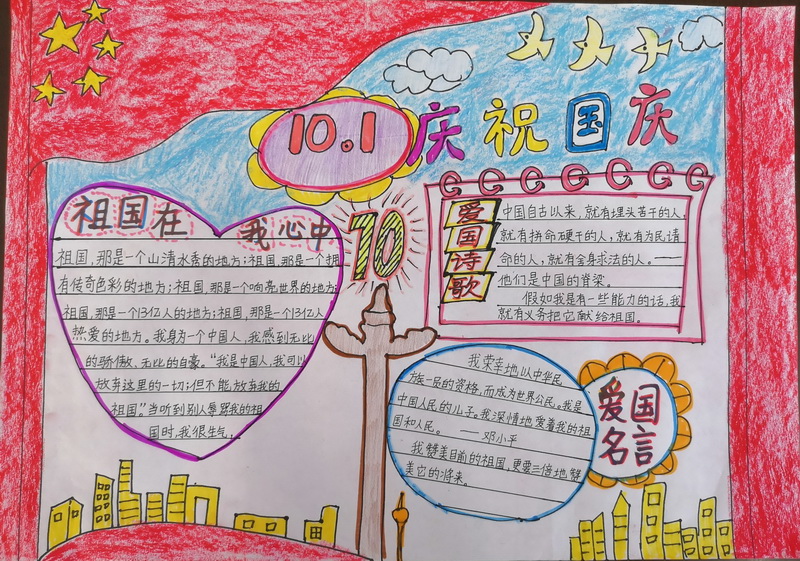 10.1
庆祝国庆
祖国在
我心中
祖国,那是一个山清水秀的地方;祖国,那是一个拥
有传奇色彩的地方;祖国,那是一个响亮世界的地方;
祖国,那是一个13亿人的地方;祖国,那是一个13亿人
热爱的地方。我身为一个中国人,我感到无比
的骄傲、无比的自豪。“我是中国人,我可以
放弃这里的一切;但不能放弃我的
祖国”当听到别人辱骂我的祖
国时,我很生气。
70
爱国诗歌
中国自古以来,就有埋头苦干的人,
就有拼命硬干的人,就有为民请
命的人,就有舍身求法的人。——
他们是中国的脊梁。
假如我是有一些能力的话,我
就有义务把它献给祖国。
我荣幸地以中华民
族一员的资格,而成为世界公民。我是
中国人民的儿子。我深情地爱着我的祖
国和人民。——邓小平
我赞美目前的祖国,更要三倍地赞
美它的将来。
爱国
名言